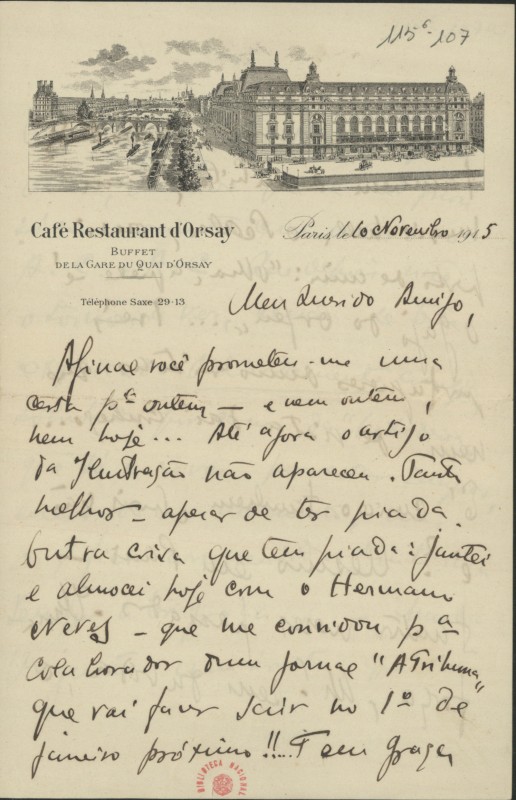 115⁶-107
Café Restaurant d'Orsay
BUFFET
DE LA GARE DU QUAI D'ORSAY
Téléphone Saxe 29-13
Paris, le 10 Novembro 1915
Meu Querido Amigo,
Afinal você prometeu-me uma
carta pª ontem — e nem ontem,
nem hoje... Até agora o artigo
da Ilustração não apareceu. Tanto
melhor — apesar de ter piada.
Outra coisa que tem piada: Jantei
e almocei hoje com o Hermano
Neves — que me convidou pª
colaborador dum jornal "A Tribuna"
que vai fazer sair no 1º de
janeiro próximo!!... Tem graça
BIBLIOTECA NACIONAL